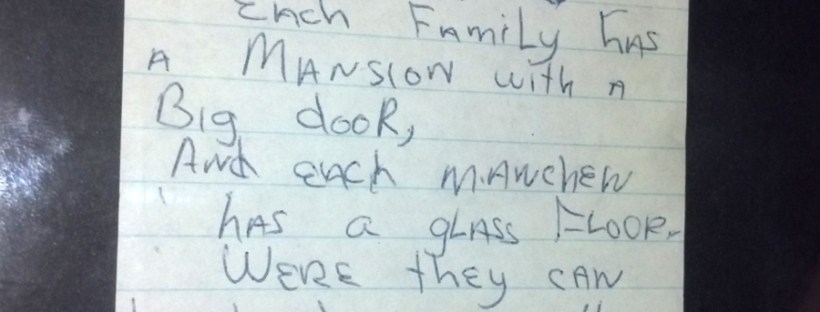 Each Family has
A Mansion with a
Big dooR,
And each manchen
has a glass Floor.
Were they can